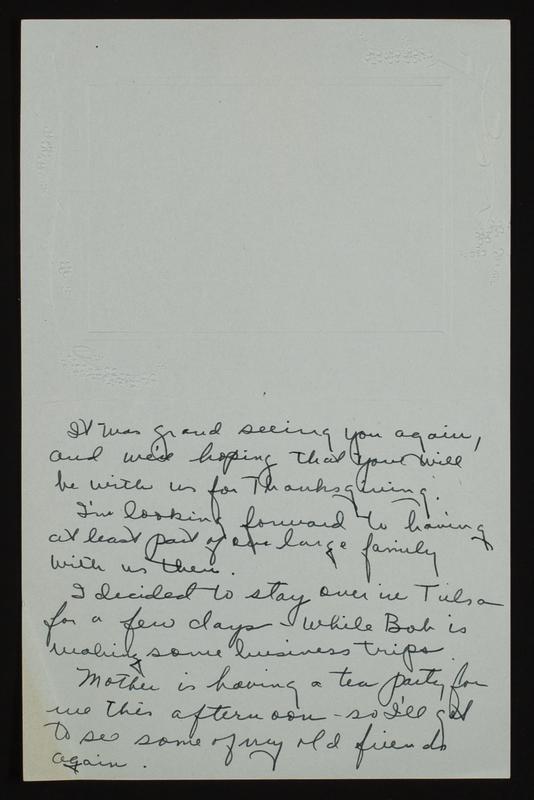 It was grand seeing you again,
and we're hoping that you will
be with us for Thanksgiving.
I'm looking forward to having
at least part of our large family
with us then.
I decided to stay over in Tulsa
for a few days - While Bob is
making some business trips.
Mother is having a tea party for
me this afternoon - so I'll get
to see some of my old friends
again.